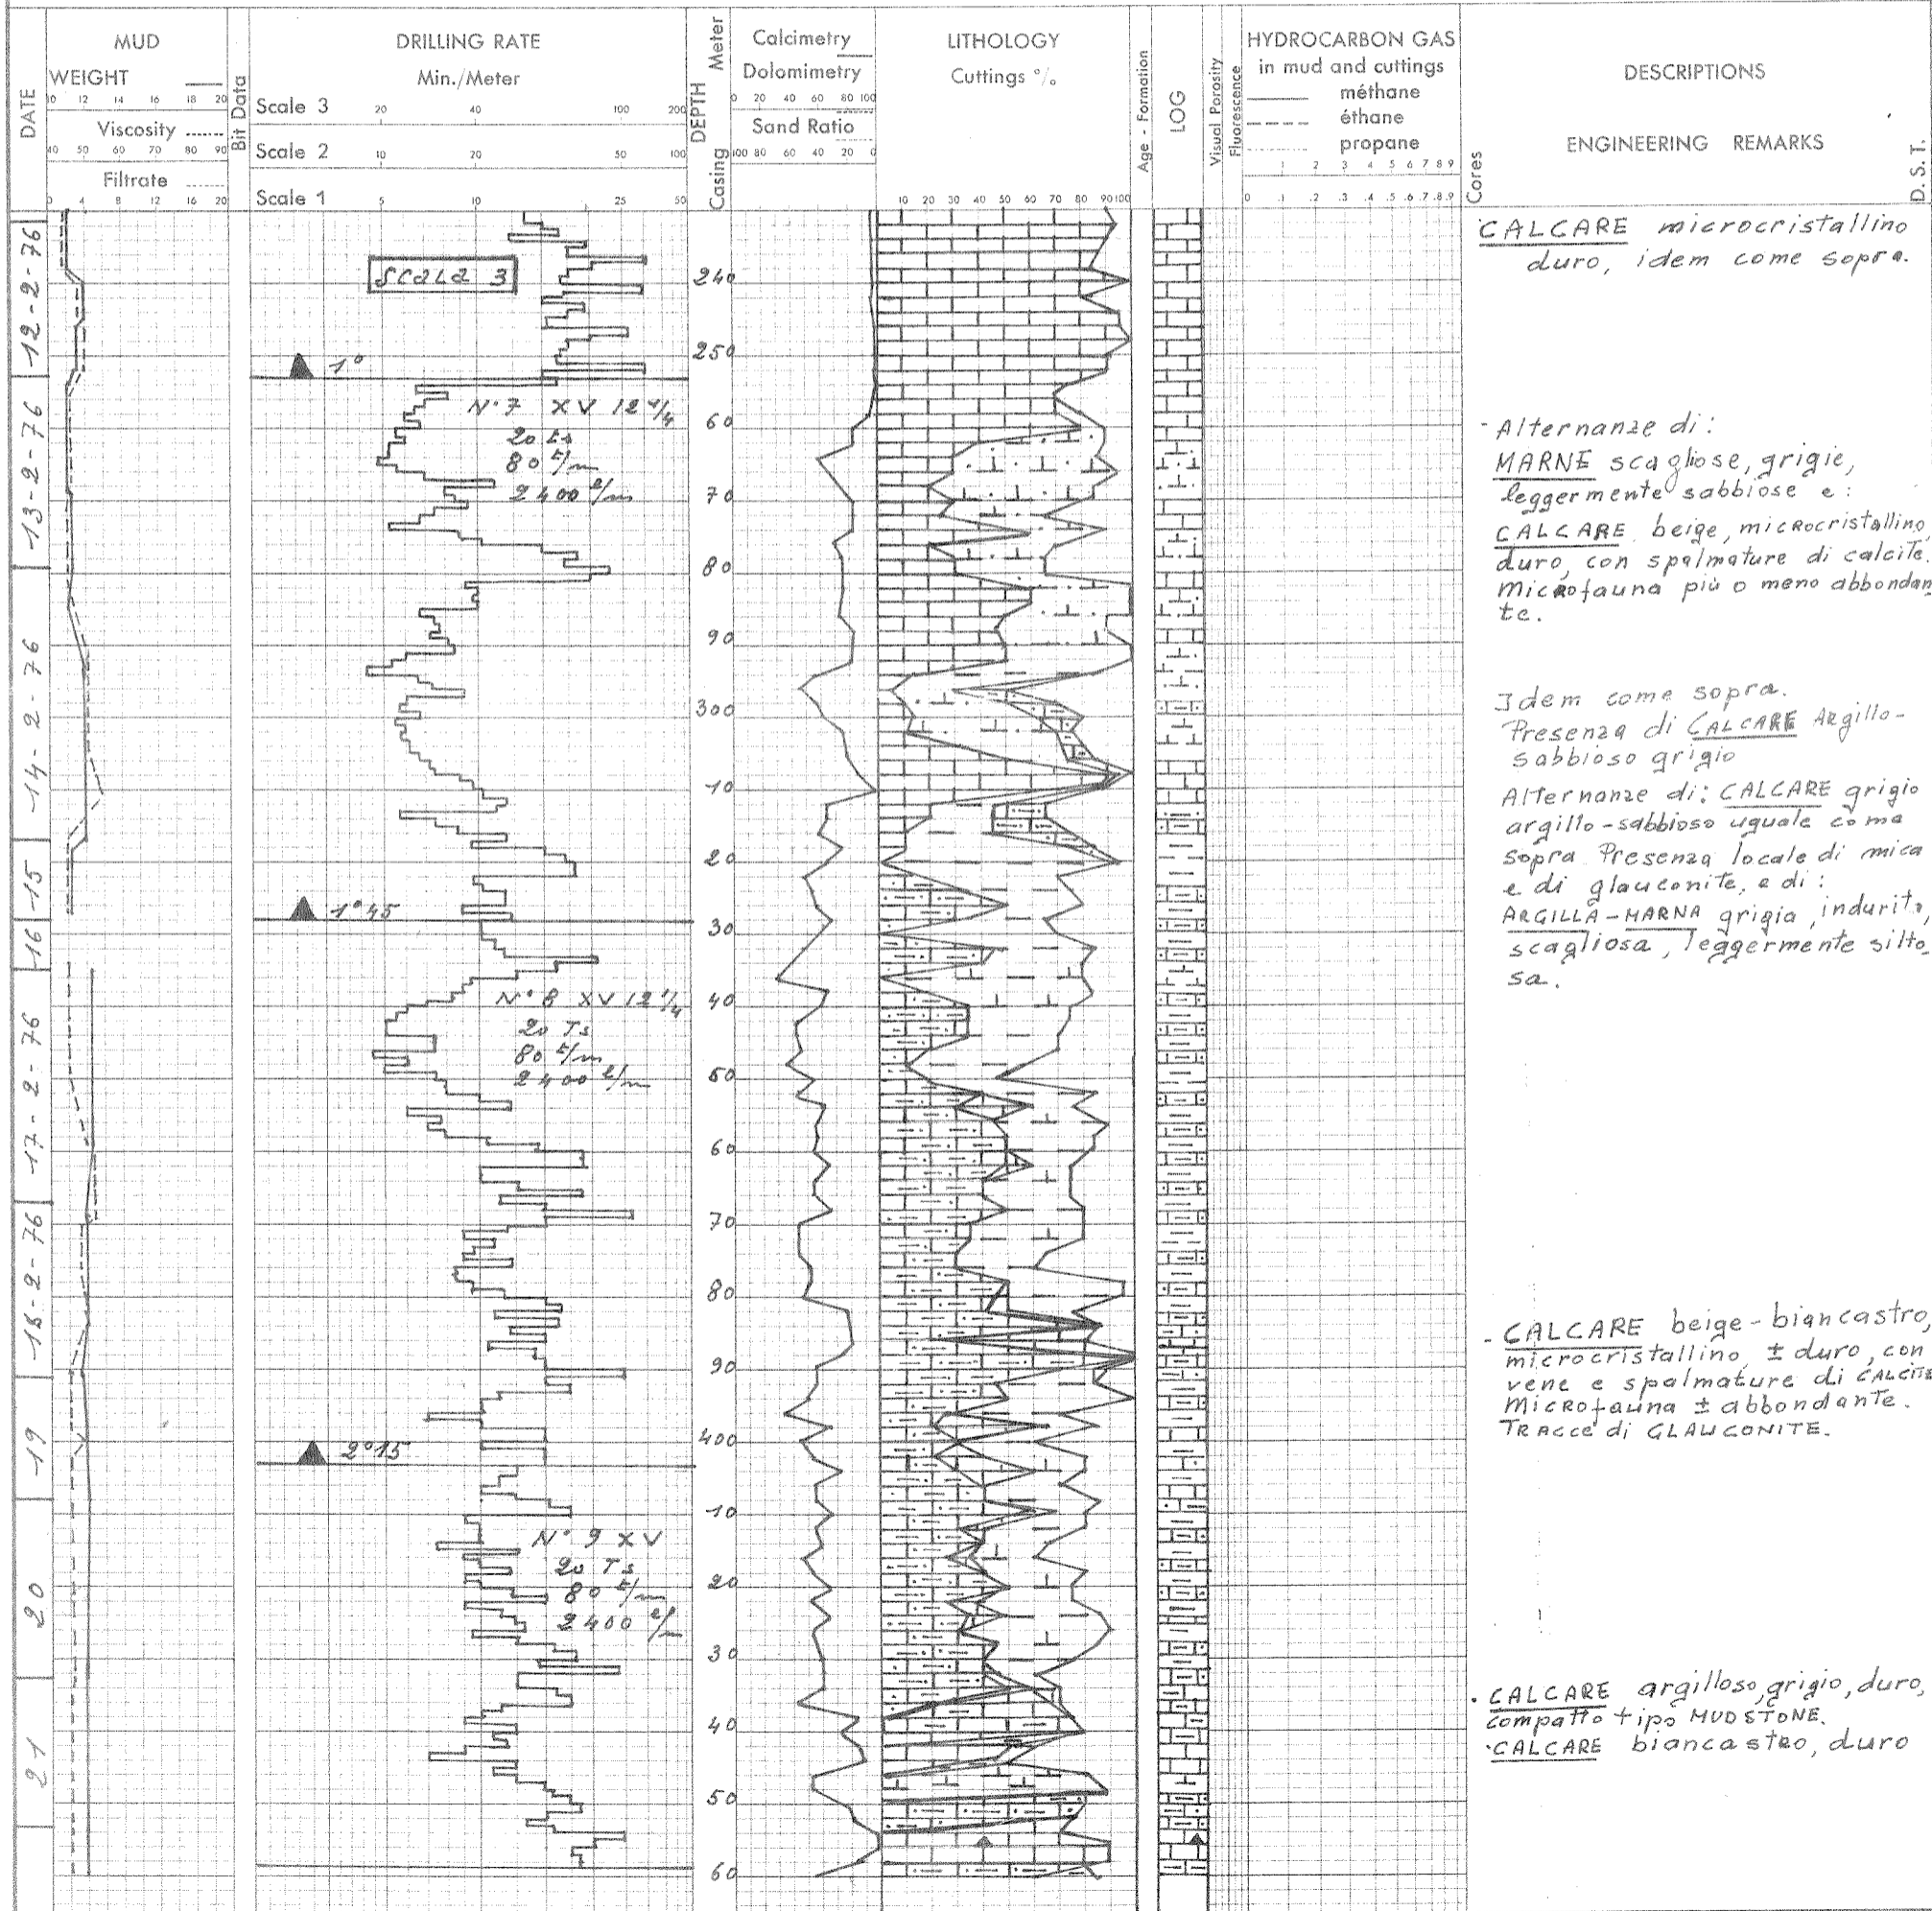 MUD
WEIGHT
10 12 14 16 18 20
Viscosity
40 50 60 70 80 90
Filtrate
0 4 8 12 16 20
DATE
Bit Data
DRILLING RATE
Min./Meter
Scale 3 20 40 100 200
Scale 2 10 20 50 100
Scale 1 5 10 25 50
DEPTH Meter
Casing
Calcimetry
Dolomimetry
0 20 40 60 80 100
Sand Ratio
100 80 60 40 20 0
LITHOLOGY
Cuttings %
10 20 30 40 50 60 70 80 90 100
Age - Formation
LOG
Visual Porosity
Fluorescence
HYDROCARBON GAS
in mud and cuttings
méthane
éthane
propane
1 2 3 4 5 6 7 8 9
0 .1 .2 .3 .4 .5 .6 .7 .8 .9
Cores
DESCRIPTIONS
ENGINEERING REMARKS
D.S.T.
12-2-76
13-2-76
14-2-76
15
16
17-2-76
18-2-76
19
20
21
Scala 3
1°
N° 7 XV 12 1/4
20 ts
80 t/m
2400 l/m
1°45
N° 8 XV 12 1/4
20 Ts
80 t/m
2400 l/m
2°15
N° 9 XV
20 Ts
80 t/m
2400 l/m
240
250
60
70
80
90
300
10
20
30
40
50
60
70
80
90
400
10
20
30
40
50
60
CALCARE microcristallino
duro, idem come sopra.
- Alternanze di:
MARNE scagliose, grigie,
leggermente sabbiose e:
CALCARE beige, microcristallino,
duro, con spalmature di calcite.
Microfauna più o meno abbondan
te.
Idem come sopra.
Presenza di CALCARE Argillo-
sabbioso grigio
Alternanze di: CALCARE grigio
argillo-sabbioso uguale come
sopra Presenza locale di mica
e di glauconite, e di:
ARGILLA-MARNA grigia, indurita,
scagliosa, leggermente silto_
sa.
- CALCARE beige-biancastro,
microcristallino, ± duro, con
vene e spalmature di CALCITE
Microfauna ± abbondante.
TRACCE di GLAUCONITE.
. CALCARE argilloso, grigio, duro,
compatto tipo MUDSTONE.
. CALCARE biancastro, duro